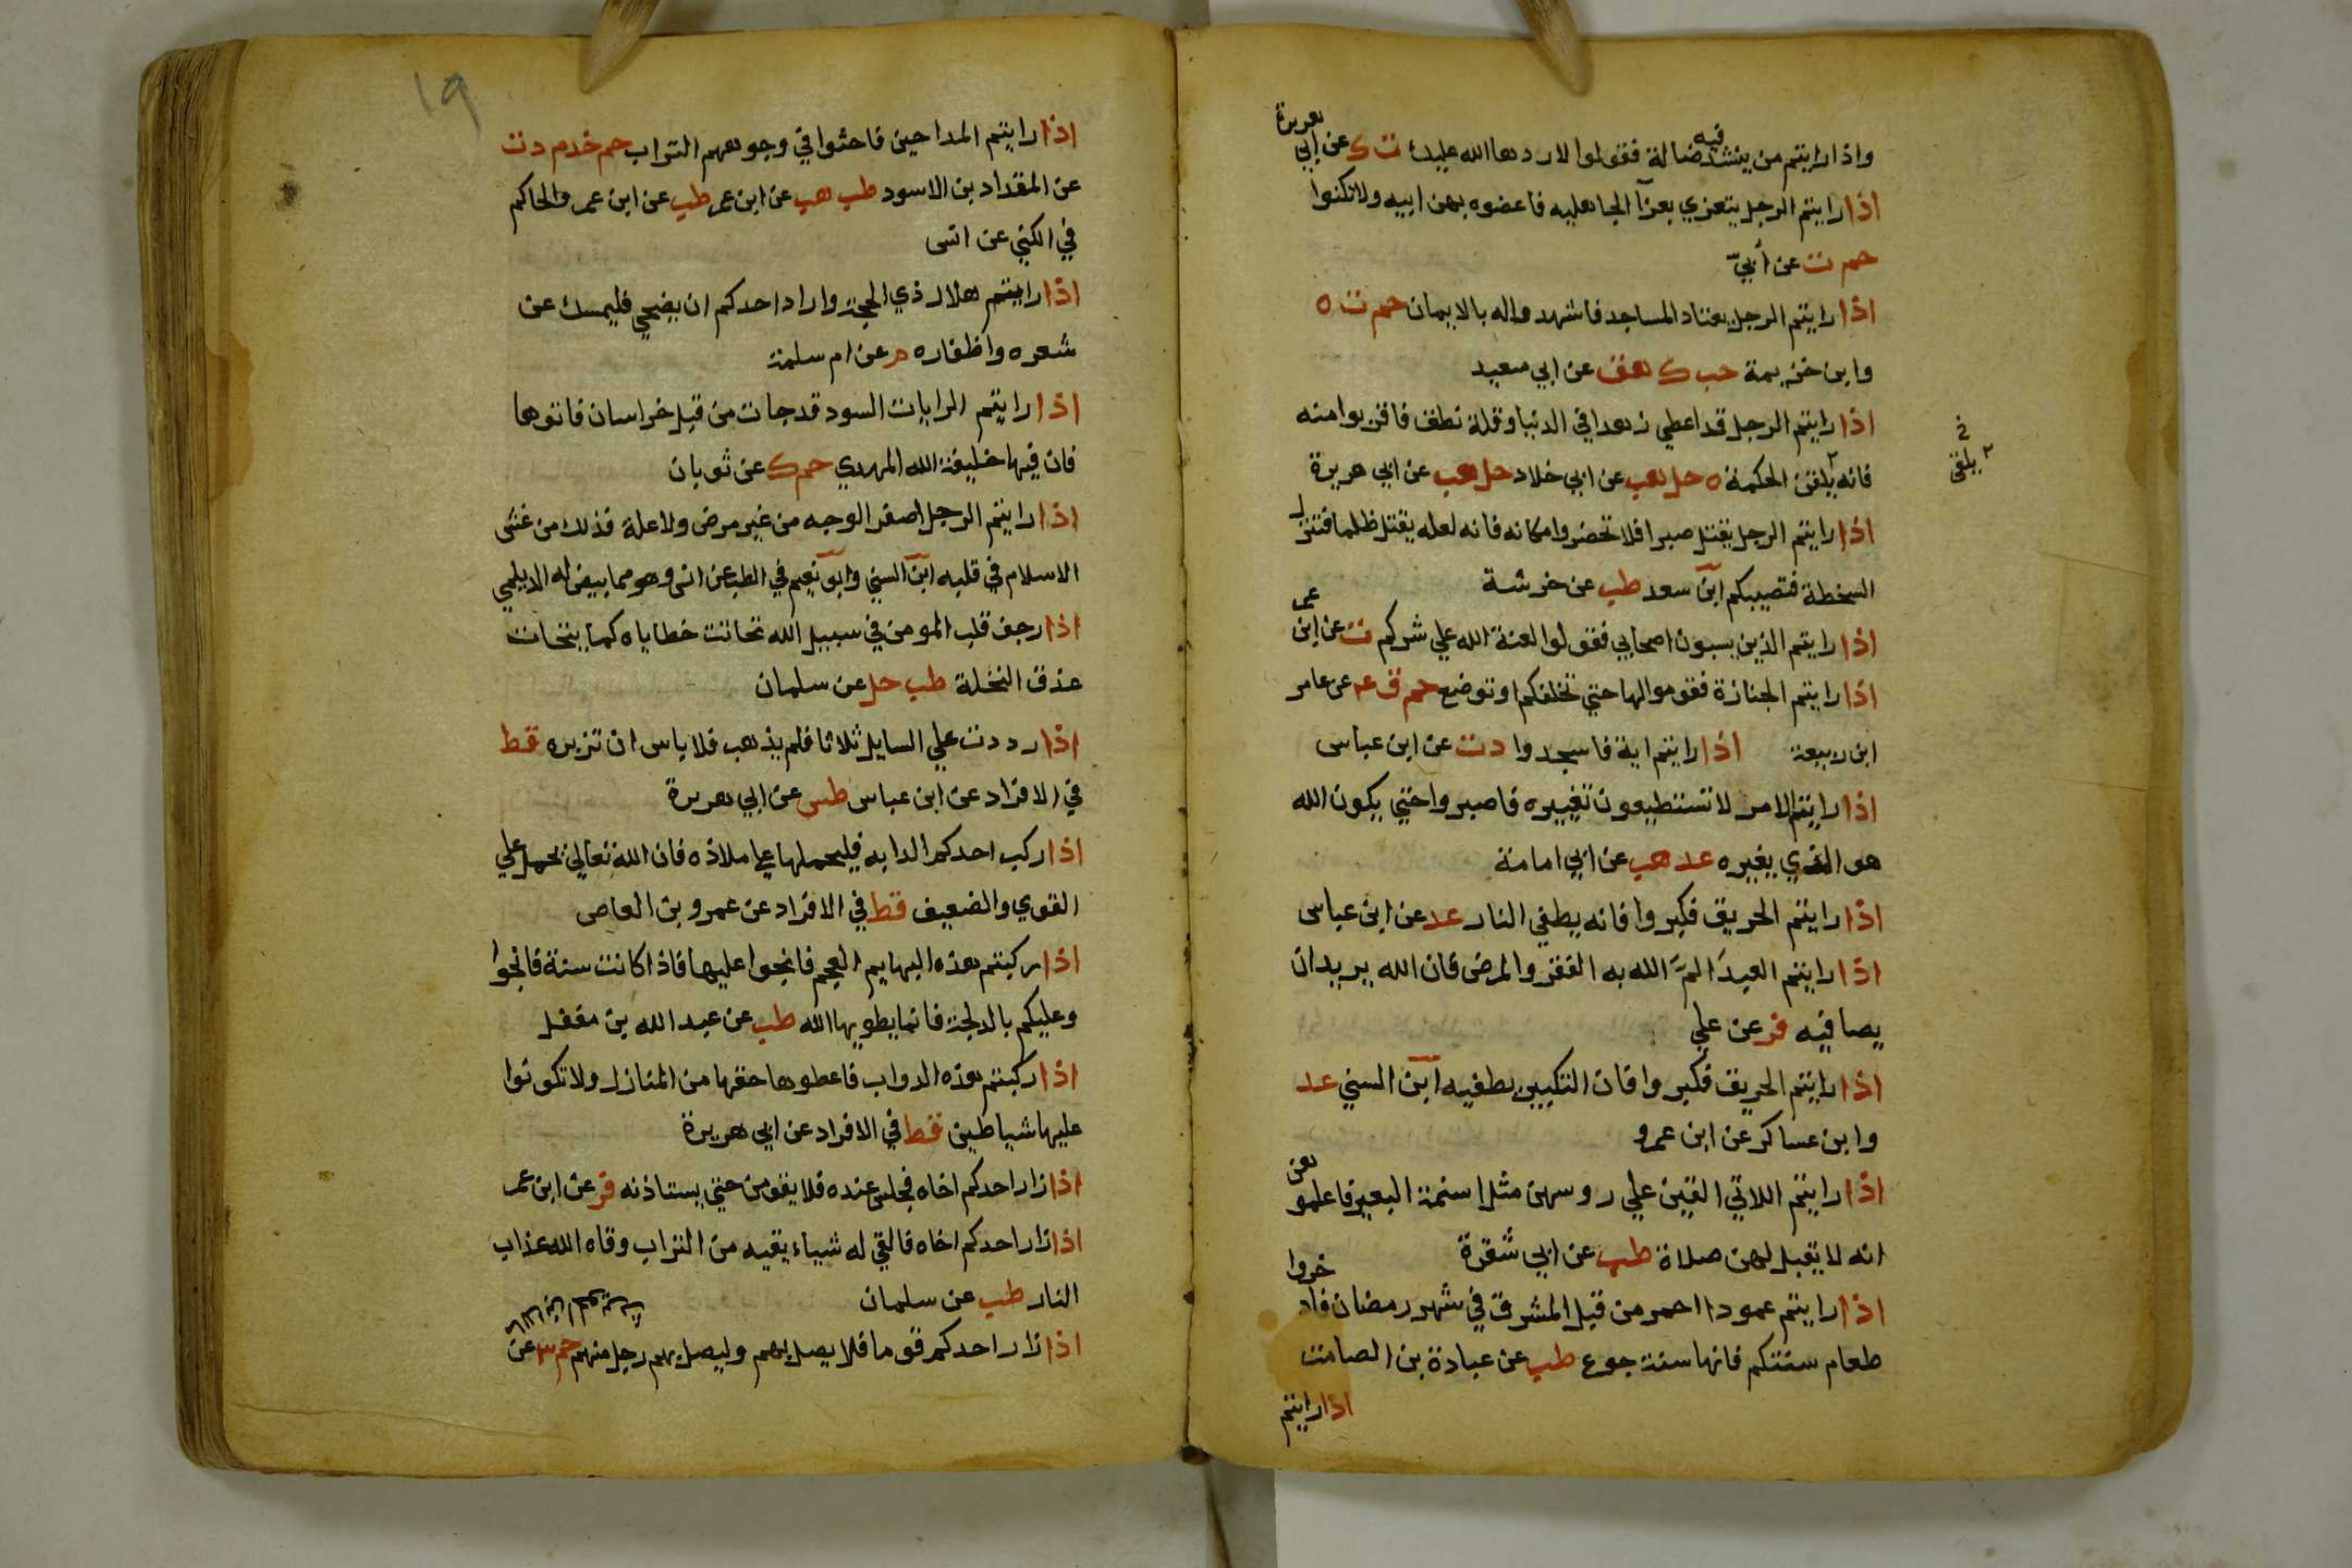 واذا رايتم من ينشد فيه ضالة فقولوا لا ردها الله عليك ت ك عن ابي هريرة
اذا رايتم الرجل يتعزي بعزا الجاهليه فاعضوه بهن ابيه ولا تكنوا
حم ت عن أبيّ
اذا رايتم الرجل يعتاد المساجد فاشهدوا له بالايمان حم ت ه
وابن خزيمة حب ك هق عن ابي سعيد
اذا رايتم الرجل قد اعطي زهدا في الدنيا وقلة نطق فاقربوا منه
فانه يلقن الحكمة ه حل هب عن ابي خلاد حل هب عن ابي هريرة
٢ يلقى
اذا رايتم الرجل يقتل صبرا فلا تحضروا مكانه فانه لعله يقتل ظلما فتنزل
السخطة فتصيبكم ابن سعد طب عن خرشة
اذا رايتم الذين يسبون اصحابي فقولوا لعنة الله علي شركم ت عن ابن عمر
اذا رايتم الجنازة فقوموا لها حتي تخلفكم او توضع حم ق ع عن عامر
ابن ربيعة اذا رايتم اية فاسجدوا د ت عن ابن عباس
اذا رايتم الامر لا تستطيعون تغييره فاصبروا حتي يكون الله
هو الذي يغيره عد هب عن ابي امامة
اذا رايتم الحريق فكبروا فانه يطفي النار عد عن ابن عباس
اذا رايتم العبدَ المَّ الله به الفقر والمرض فان الله يريد ان
يصافيه فر عن علي
اذا رايتم الحريق فكبروا فان التكبير يطفيه ابن السني عد
وابن عساكر عن ابن عمرو
اذا رايتم اللاتي القين علي روسهن مثل اسنمة البعير فاعلموهن
انه لا تقبل لهن صلاة طب عن ابي شقرة
اذا رايتم عمودا احمر من قبل المشرق في شهر رمضان فادخروا
طعام سنتكم فانها سنة جوع طب عن عبادة بن الصامت
اذا رايتم
١٩
اذا رايتم المداحين فاحثوا في وجوههم التراب حم خد م د ت
عن المقداد بن الاسود طب هب عن ابن عمر طب عن ابن عمرو الحاكم
في الكني عن انس
اذا رايتم هلال ذي الحجة واراد احدكم ان يضحي فليمسك عن
شعره واظفاره م عن ام سلمة
اذا رايتم الرايات السود قد جات من قبل خراسان فاتوها
فان فيها خليفة الله المهدي حم ك عن ثوبان
اذا رايتم الرجل اصفر الوجه من غير مرض ولا علة فذلك من غش
الاسلام في قلبه ابن السني وابو نعيم في الطب عن انس وهو مما بيض له الديلمي
اذا رجف قلب المومن في سبيل الله تحاتت خطاياه كما يتحات
عذق النخلة طب حل عن سلمان
اذا رددت علي السايل ثلاثا فلم يذهب فلا باس ان تزبره قط
في الافراد عن ابن عباس طس عن ابي هريرة
اذا ركب احدكم الدابه فليحملها علي ملاذه فان الله تعالي يحمل علي
القوي والضعيف قط في الافراد عن عمرو بن العاص
اذا ركبتم هذه البهايم العجم فانجوا عليها فاذا كانت سنة فانجوا
وعليكم بالدلجة فانما يطويها الله طب عن عبد الله بن مغفل
اذا ركبتم هذه الدواب فاعطوها حقها من المنازل ولا تكونوا
عليها شياطين قط في الافراد عن ابي هريرة
اذا زار احدكم اخاه فجلس عنده فلا يقومن حتي يستاذنه فر عن ابن عمر
اذا زار احدكم اخاه فالقي له شياء يقيه من التراب وقاه الله عذاب
النار طب عن سلمان
اذا زار احدكم قوما فلا يصل بهم وليصل بهم رجل منهم حم ٣ عن